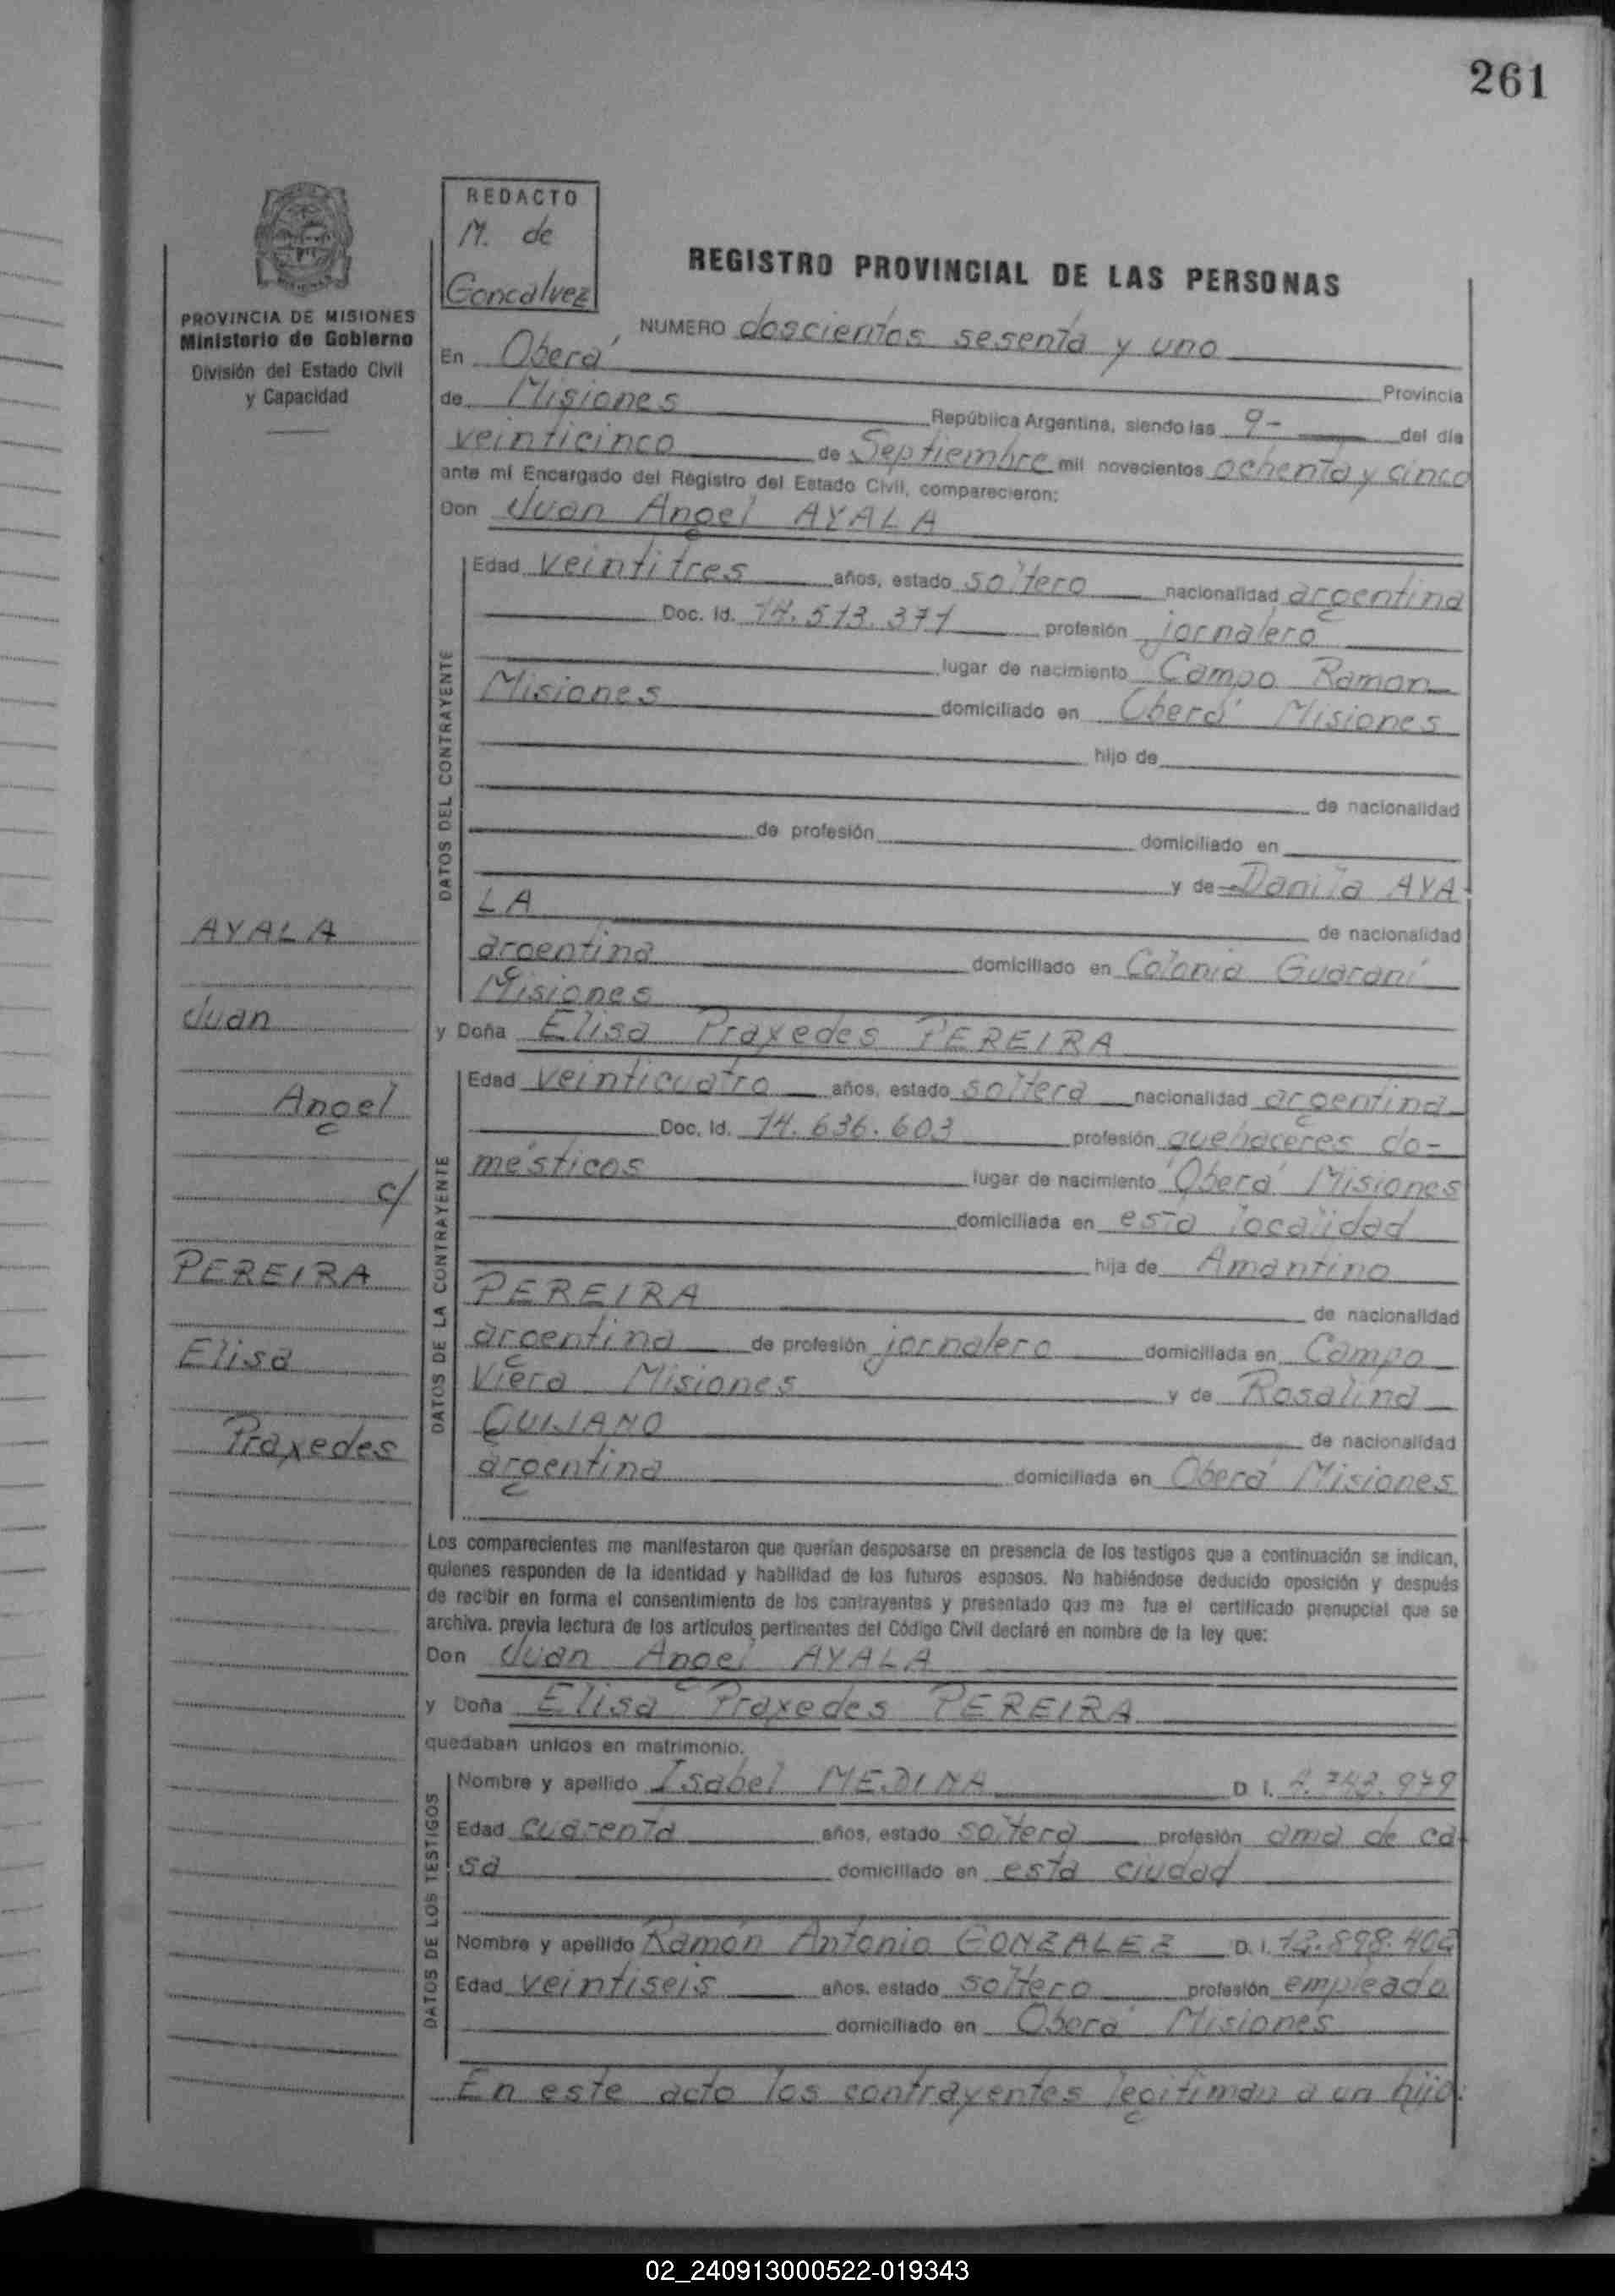 261
REDACTO
M. de
Goncalvez
PROVINCIA DE MISIONES
Ministerio de Gobierno
División del Estado Civil
y Capacidad
REGISTRO PROVINCIAL DE LAS PERSONAS
NUMERO doscientos sesenta y uno
En Oberá Provincia
de Misiones República Argentina, siendo las 9- del día
veinticinco de Septiembre mil novecientos ochenta y cinco
ante mí Encargado del Registro del Estado Civil, comparecieron:
Don Juan Angel AYALA
DATOS DEL CONTRAYENTE
Edad veintitres años, estado soltero nacionalidad argentina
Doc. Id. 14.513.371 profesión jornalero
lugar de nacimiento Campo Ramon
Misiones domiciliado en Oberá Misiones
hijo de
de nacionalidad
de profesión domiciliado en
y de Danila AYA
LA de nacionalidad
argentina domiciliado en Colonia Guaraní
Misiones
y Doña Elisa Praxedes PEREIRA
DATOS DE LA CONTRAYENTE
Edad veinticuatro años, estado soltera nacionalidad argentina
Doc. Id. 14.636.603 profesión quehaceres do-
mésticos lugar de nacimiento Oberá Misiones
domiciliada en esta localidad
hija de Amantino
PEREIRA de nacionalidad
argentina de profesión jornalero domiciliada en Campo
Viera Misiones y de Rosalina
QUIJANO de nacionalidad
argentina domiciliada en Oberá Misiones
Los comparecientes me manifestaron que querían desposarse en presencia de los testigos que a continuación se indican,
quienes responden de la identidad y habilidad de los futuros esposos. No habiéndose deducido oposición y después
de recibir en forma el consentimiento de los contrayentes y presentado que me fue el certificado prenupcial que se
archiva. previa lectura de los artículos pertinentes del Código Civil declaré en nombre de la ley que:
Don Juan Angel AYALA
y Doña Elisa Praxedes PEREIRA
quedaban unidos en matrimonio.
DATOS DE LOS TESTIGOS
Nombre y apellido Isabel MEDINA D. I.
Edad cuarenta años, estado soltera profesión ama de ca
sa domiciliado en esta ciudad
Nombre y apellido Ramón Antonio GONZALEZ D. I.
Edad veintiseis años, estado soltero profesión empleado
domiciliado en Oberá Misiones
En este acto los contrayentes legitiman a un hijo:
AYALA
Juan
Angel
c/
PEREIRA
Elisa
Praxedes
02_240913000522-019343